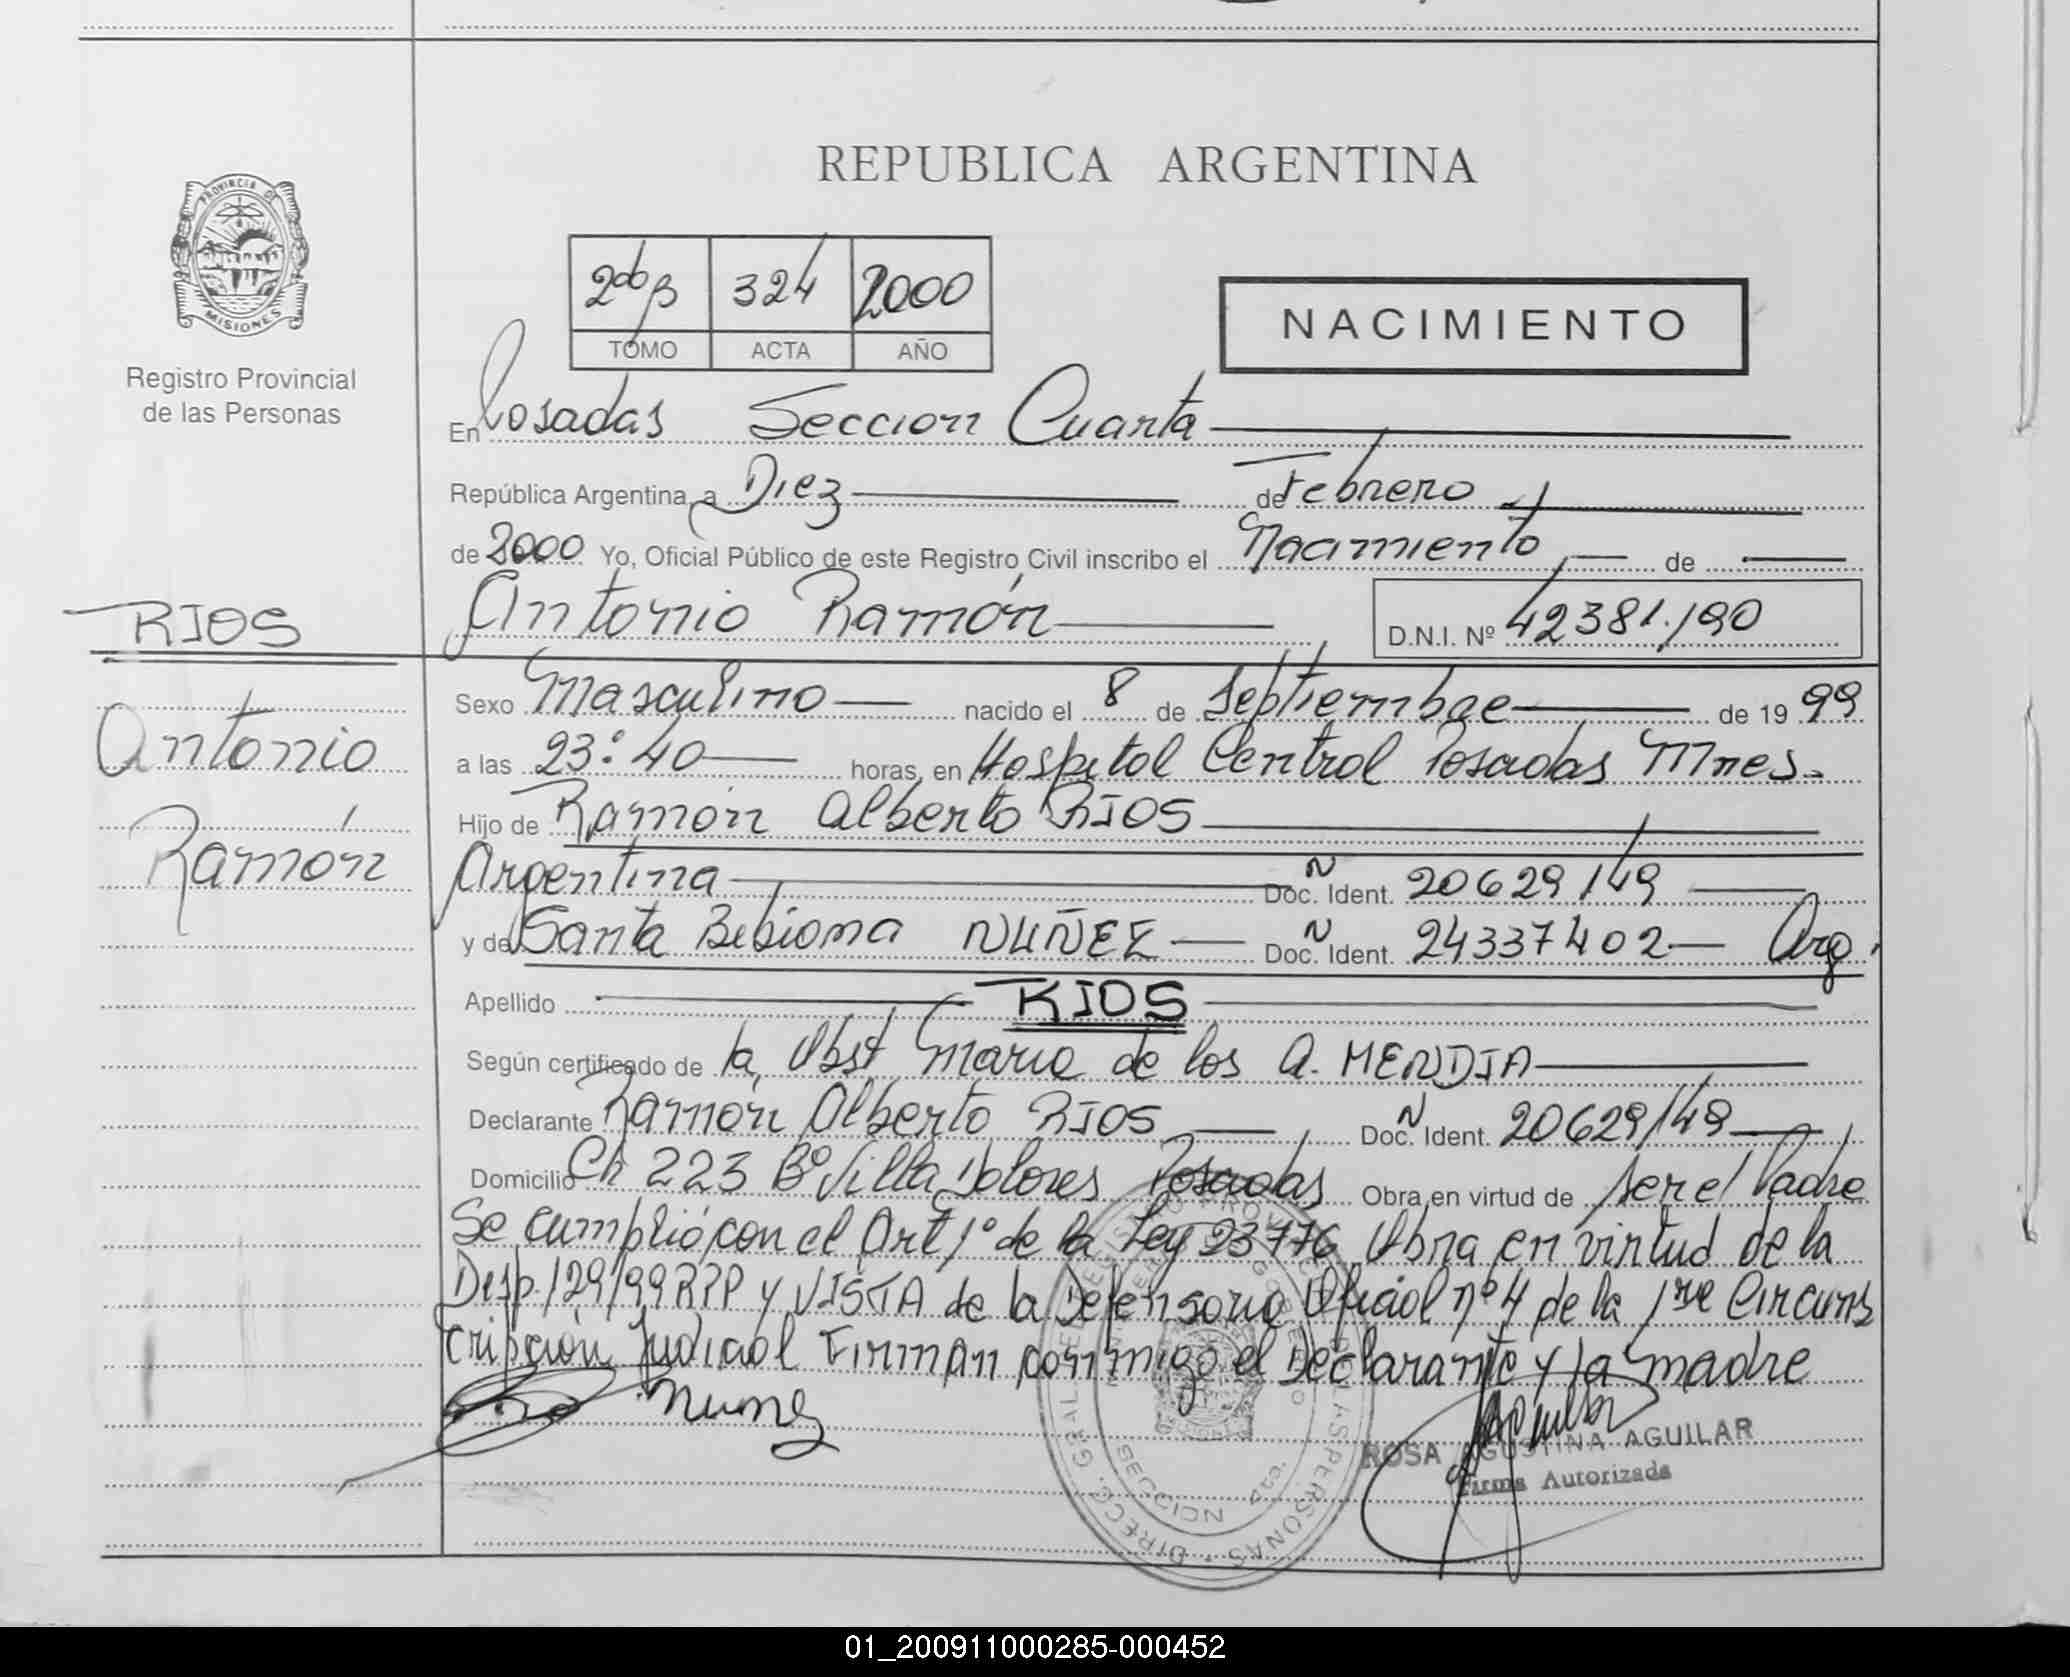 REPUBLICA ARGENTINA
PROVINCIA DE
MISIONES
Registro Provincial
de las Personas
2do B 324 2000
TOMO ACTA AÑO
NACIMIENTO
En Posadas Sección Cuarta
República Argentina, a Diez de Febrero
de 2000 Yo, Oficial Público de este Registro Civil inscribo el Nacimiento de
Antonio Ramón D.N.I. Nº 42381.190
RIOS
Antonio
Ramón
Sexo Masculino nacido el 8 de Septiembre de 1999
a las 23:40 horas, en Hospital Central Posadas Mnes.
Hijo de Ramón Alberto RIOS
Argentina Doc. Ident. 20629149
y de Santa Bibiana NUÑEZ Doc. Ident. 24337402 Arg.
Apellido RIOS
Según certificado de la Obst Maria de los A. MENDIA
Declarante Ramón Alberto RIOS Doc. Ident. 20629149
Domicilio Ch 223 Bº Villa Dolores Posadas Obra en virtud de ser el Padre
Se cumplió con el Art 1º de la Ley 23776 Obra en virtud de la
Disp. 129/99 RPP y VISTA de la Defensoria Oficial nº 4 de la 1ra Circuns
cripción Judicial Firman conmigo el Declarante y la madre
Nuñez
ROSA AGUSTINA AGUILAR
Firma Autorizada
01_200911000285-000452